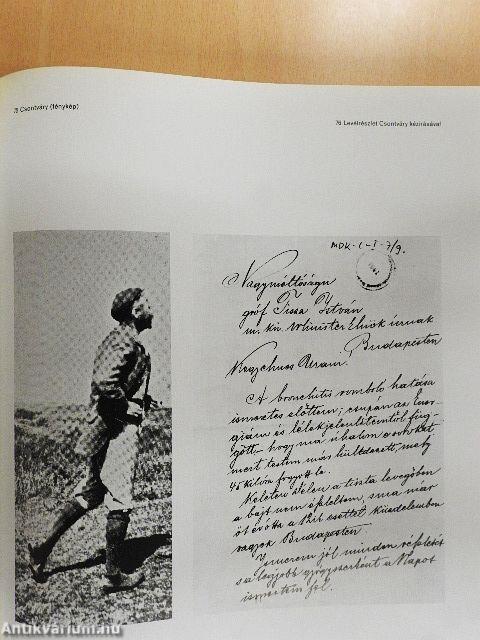 75 Csontváry (fénykép)
76 Levélrészlet Csontváry kézírásával
MDK-C-I-7/9.
Nagyméltóságu
gróf Tisza István
m. kir. Minister Elnök úrnak
Budapesten
Kegyelmes Uram.
A bronchitis romboló hatása
ismeretes előttem; csupán az ener-
giám és lélekjelenlétemtől függ
gött hogy ma írhatom a sorokat
mert testem más küldetett mely
45 kilóra fogyott le.
Keleten délen a tiszta levegőben
a bajt nem éreztem, s ma már
öt év óta a küzdelemben
vagyok Budapesten.
Ismerem jól minden
s a legjobb gyógyszerként a Napot
ismertem fel.
Antikvárium.hu